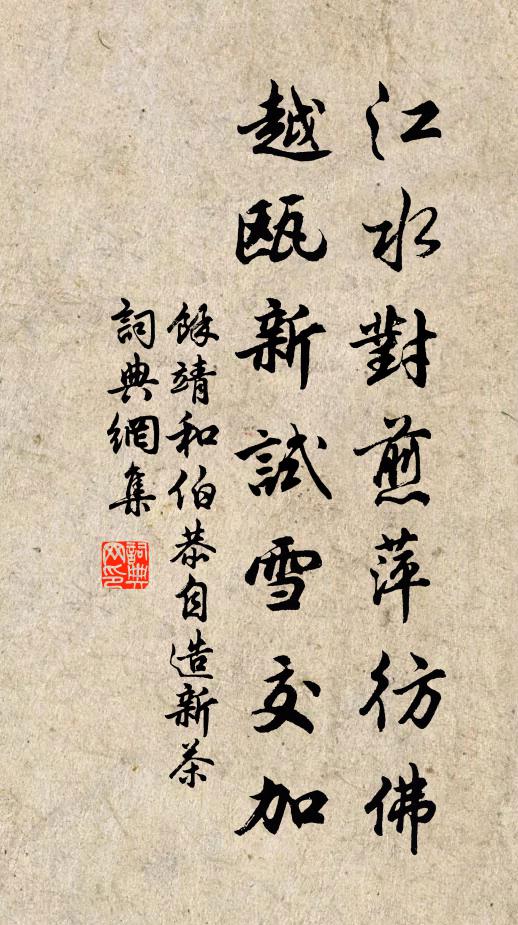 江水對煎萍彷佛
越甌新試雪交加
餘靖和伯恭自造新茶
詞典網集
詞典网印